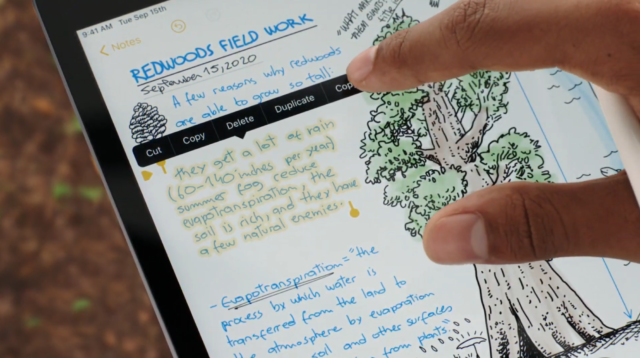 9:41 AM Tue Sep 15th
Notes
REDWOODS FIELD WORK
September 15, 2020
A few reasons why redwoods
are able to grow so tall:
Cut Copy Delete Duplicate Cop
they get a lot of rain
(60-140 inches per year)
summer fog reduce
evapotranspiration, the
soil is rich, and they have
a few natural enemies.
- Evapotranspiration = "the
process by which water is
transferred from the land to
the atmosphere by evaporation
soil and other surfaces
from plants"